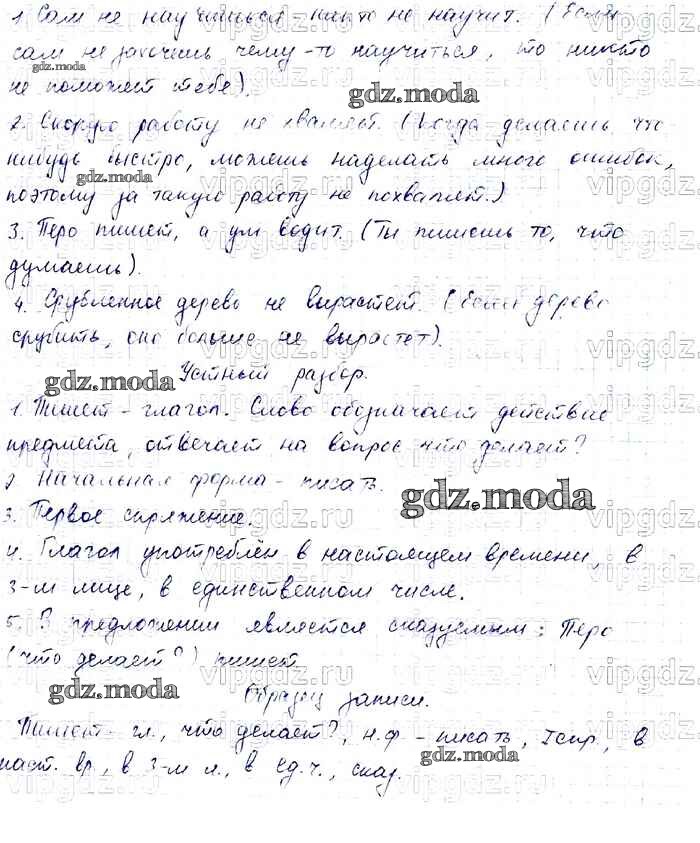 1. Сам не научишься, никто не научит. (Если
сам не захочешь чему-то научиться, то никто
не поможет тебе).
2. Скорую работу не хвалят. (Когда делаешь что-
нибудь быстро, можешь наделать много ошибок,
поэтому за такую работу не похвалят.)
3. Перо пишет, а ум водит. (Ты пишешь то, что
думаешь).
4. Срубленное дерево не вырастет. (Если дерево
срубить, оно больше не вырастет).
Устный разбор.
1. Пишет - глагол. Слово обозначает действие
предмета, отвечает на вопрос что делает?
2. Начальная форма - писать.
3. Первое спряжение.
4. Глагол употреблён в настоящем времени, в
3-м лице, в единственном числе.
5. В предложении является сказуемым: Перо
(что делает?) пишет.
Образец записи.
Пишет - гл., что делает?, н.ф - писать, I спр., в
наст. вр., в 3-м л., в ед.ч., сказ.
gdz.moda
gdz.moda
gdz.moda
gdz.moda
gdz.moda
gdz.moda
gdz.moda
vipgdz.ru